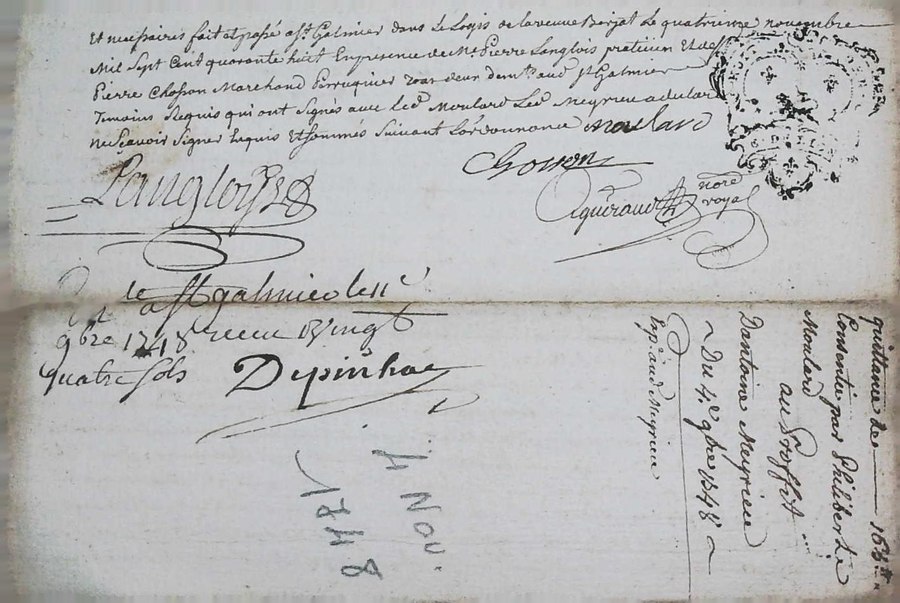 Et necessaires fait et passé a St Galmier dans Le Logis de la veuve Borjat Le quatrieme novembre
Mil Sept Cent quarante huit En presence de Me Pierre Langlois praticien Et de Sr
Pierre Chosson Marchand Perruquier tous deux demts aud St Galmier
Temoins Requis qui ont Signés avec Led Moulard Led Meyrieu a declaré
ne Sçavoir Signer Enquis Et Sommés Suivant L'ordonnance Moulard
Chosson
Langlois
nore
royal
a St galmier le 11e
9bre 1748 receu vingt
quatre sols
Depinhac
4 Nov.
1748
quittance de 164
Consentie par Philibert
Moulard
au Proffit
Dantoine Meyrieu
Du 4e 9bre 1748
Exp. aud Meyrieu